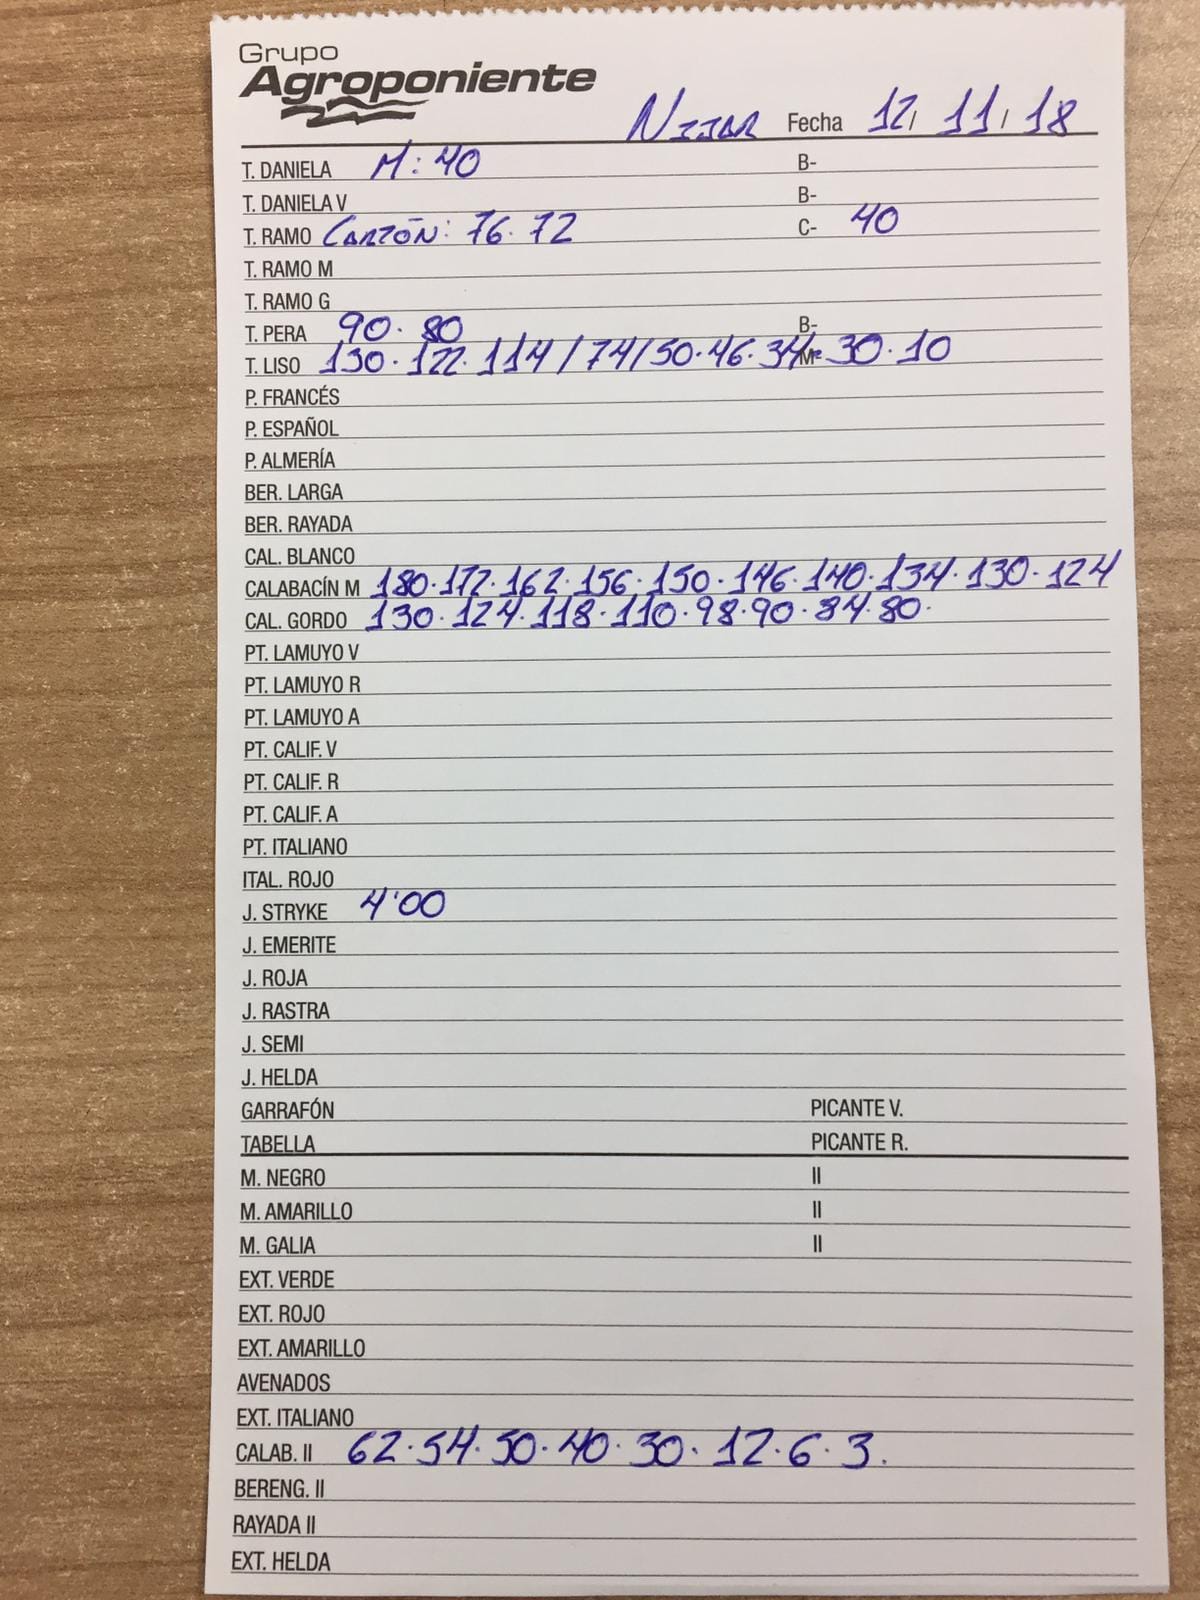 Grupo
Agroponiente
Nijar Fecha 12/ 11/ 18
T. DANIELA M: 40 B-
T. DANIELA V B-
T. RAMO Cartón: 76. 72 C- 40
T. RAMO M
T. RAMO G
T. PERA 90. 80 B-
T. LISO 130. 122. 114 / 74 / 50. 46. 34 M- 30. 10
P. FRANCÉS
P. ESPAÑOL
P. ALMERÍA
BER. LARGA
BER. RAYADA
CAL. BLANCO
CALABACÍN M 180. 172. 162. 156. 150. 146. 140. 134. 130. 124
CAL. GORDO 130. 124. 118. 110. 98. 90. 84. 80.
PT. LAMUYO V
PT. LAMUYO R
PT. LAMUYO A
PT. CALIF. V
PT. CALIF. R
PT. CALIF. A
PT. ITALIANO
ITAL. ROJO
J. STRYKE 4'00
J. EMERITE
J. ROJA
J. RASTRA
J. SEMI
J. HELDA
GARRAFÓN PICANTE V.
TABELLA PICANTE R.
M. NEGRO II
M. AMARILLO II
M. GALIA II
EXT. VERDE
EXT. ROJO
EXT. AMARILLO
AVENADOS
EXT. ITALIANO
CALAB. II 62. 54. 50. 40. 30. 12. 6. 3.
BERENG. II
RAYADA II
EXT. HELDA